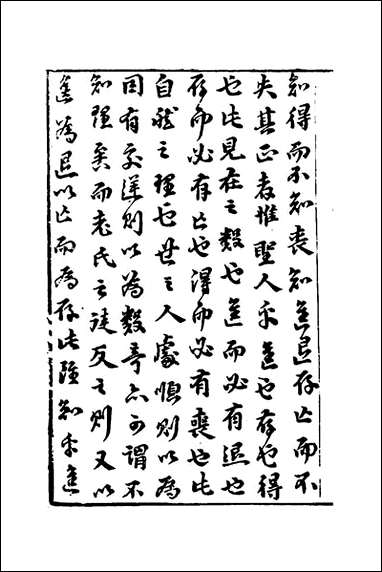 知得而不知喪知進退存亡而不
失其正者惟聖人乎進也存也得
也此見在之數也進而必有退也
存而必有亡也得而必有喪也此
自然之理也世之人處順則以為
固有交逆則以為數奇亦可謂不
知理矣而老氏之徒反之則又以
進為退以亡而為存此雖知乎進